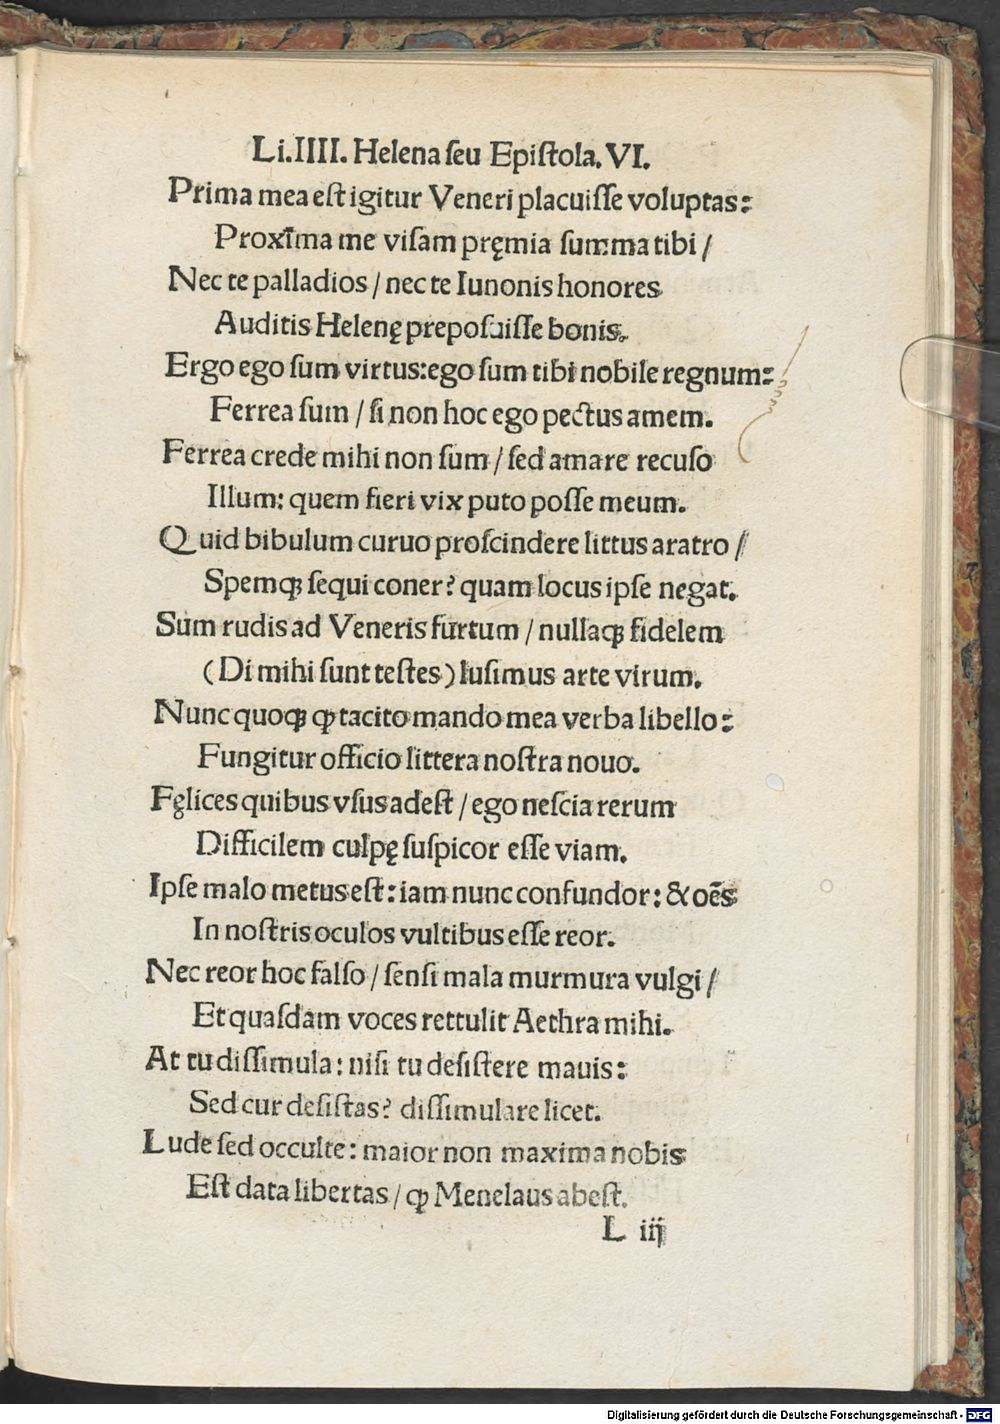 Li.IIII. Helena ſeu Epiſtola. VI.
Prima mea eſt igitur Veneri placuiſſe voluptas:
Proxīma me viſam pręmia ſumma tibi /
Nec te palladios / nec te Iunonis honores
Auditis Helenę prepoſuiſſe bonis.
Ergo ego ſum virtus: ego ſum tibi nobile regnum:
Ferrea ſum / ſi non hoc ego pectus amem.
Ferrea crede mihi non ſum / ſed amare recuſo
Illum: quem fieri vix puto poſſe meum.
Quid bibulum curuo proſcindere littus aratro /
Spemqꝫ ſequi coner? quam locus ipſe negat.
Sum rudis ad Veneris furtum / nullaqꝫ fidelem
(Di mihi ſunt teſtes) luſimus arte virum.
Nunc quoqꝫ ꝙ tacito mando mea verba libello:
Fungitur officio littera noſtra nouo.
Fęlices quibus vſus adeſt / ego neſcia rerum
Difficilem culpę ſuſpicor eſſe viam.
Ipſe malo metus eſt: iam nunc confundor: & oēs
In noſtris oculos vultibus eſſe reor.
Nec reor hoc falſo / ſenſi mala murmura vulgi /
Et quaſdam voces rettulit Aethra mihi.
At tu diſſimula: niſi tu deſiſtere mauis:
Sed cur deſiſtas? diſſimulare licet.
Lude ſed occulte: maior non maxima nobis
Eſt data libertas / ꝙ Menelaus abeſt.
L iij
Digitalisierung gefördert durch die Deutsche Forschungsgemeinschaft - DFG